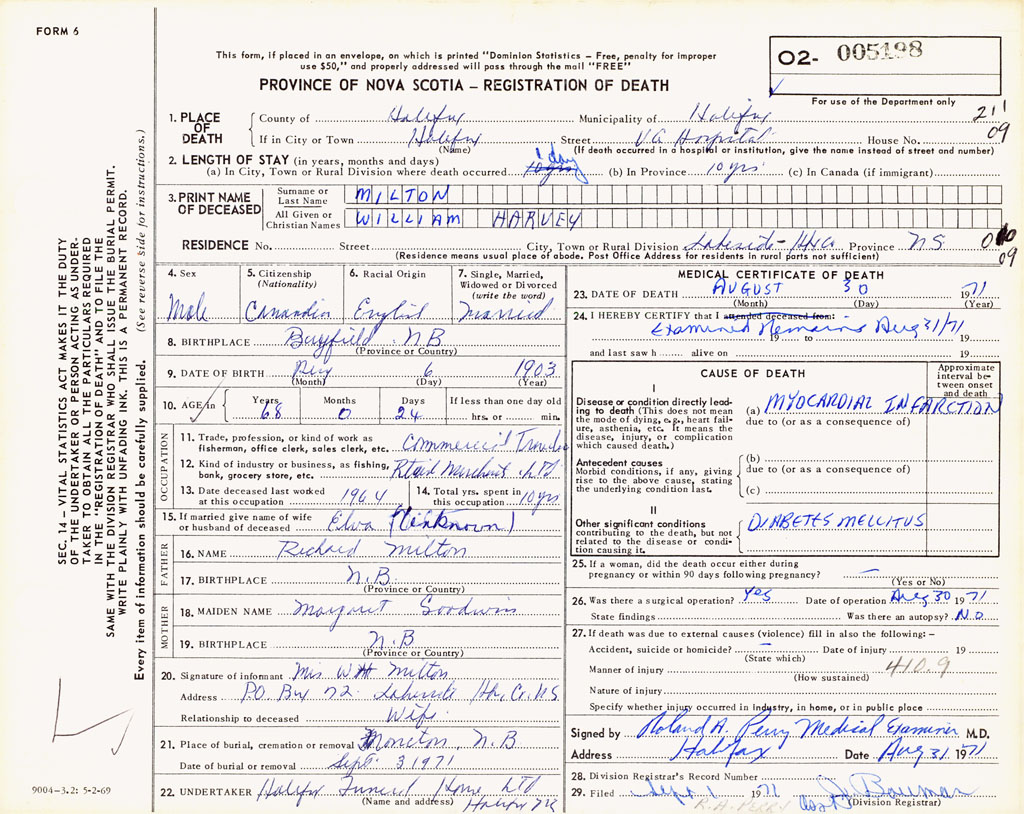 FORM 6
This form, if placed in an envelope, on which is printed "Dominion Statistics – Free, penalty for improper
use $50," and properly addressed will pass through the mail "FREE"
PROVINCE OF NOVA SCOTIA – REGISTRATION OF DEATH
02- 005198
For use of the Department only
1. PLACE OF DEATH
County of Halifax Municipality of Halifax 211
If in City or Town Halifax Street VA Hospital House No. 09
(Name) (If death occurred in a hospital or institution, give the name instead of street and number)
2. LENGTH OF STAY (in years, months and days) 1 day
(a) In City, Town or Rural Division where death occurred 10 yrs (b) In Province 10 yrs (c) In Canada (if immigrant)
3. PRINT NAME OF DECEASED
Surname or Last Name MILTON
All Given or Christian Names WILLIAM HARVEY
RESIDENCE No. Street City, Town or Rural Division Lakeside - Hfx Co Province N.S.
09
(Residence means usual place of abode. Post Office Address for residents in rural parts not sufficient)
4. Sex 5. Citizenship (Nationality) 6. Racial Origin 7. Single, Married, Widowed or Divorced (write the word)
Male Canadian English Married
8. BIRTHPLACE Bayfield N.B
(Province or Country)
9. DATE OF BIRTH 6 1903
(Month) (Day) (Year)
10. AGE in Years Months Days If less than one day old
68 0 24 hrs. or min.
OCCUPATION
11. Trade, profession, or kind of work as fisherman, office clerk, sales clerk, etc. Commercial
12. Kind of industry or business, as fishing, bank, grocery store, etc. Retail Merchant LTD
13. Date deceased last worked at this occupation 1964 14. Total yrs. spent in this occupation 10 yrs
15. If married give name of wife or husband of deceased Elva (Unknown)
FATHER
16. NAME Richard Milton
17. BIRTHPLACE N.B.
(Province or Country)
MOTHER
18. MAIDEN NAME Margaret Goodwin
19. BIRTHPLACE N.B
(Province or Country)
20. Signature of informant Mrs W H Milton
Address P.O. Box 72 Lakeside Hfx. Co. N.S
Relationship to deceased Wife
21. Place of burial, cremation or removal Moncton, N.B
Date of burial or removal Sept 3 1971
22. UNDERTAKER Halifax Funeral Home LTD
(Name and address) Halifax N.S.
MEDICAL CERTIFICATE OF DEATH
23. DATE OF DEATH AUGUST 30 1971
(Month) (Day) (Year)
24. I HEREBY CERTIFY that I attended deceased from:
Examined Remains Aug 31/71
19 to 19
and last saw h alive on 19
CAUSE OF DEATH
Approximate interval between onset and death
I
Disease or condition directly leading to death (This does not mean the mode of dying, e.g., heart failure, asthenia, etc. It means the disease, injury, or complication which caused death.)
(a) MYOCARDIAL INFARCTION
due to (or as a consequence of)
Antecedent causes
Morbid conditions, if any, giving rise to the above cause, stating the underlying condition last.
(b)
due to (or as a consequence of)
(c)
II
Other significant conditions contributing to the death, but not related to the disease or condition causing it.
DIABETES MELLITUS
25. If a woman, did the death occur either during
pregnancy or within 90 days following pregnancy? —
(Yes or No)
26. Was there a surgical operation? Yes Date of operation Aug 30 1971
State findings Was there an autopsy? NO
27. If death was due to external causes (violence) fill in also the following: –
Accident, suicide or homicide? – Date of injury 19
(State which)
Manner of injury 410.9
(How sustained)
Nature of injury
Specify whether injury occurred in industry, in home, or in public place
Signed by Roland A. Perry Medical Examiner M.D.
Address Halifax Date Aug 31 1971
28. Division Registrar's Record Number
29. Filed Sept 1 1971
R.A. PERRY (Division Registrar)
SEC. 14 – VITAL STATISTICS ACT MAKES IT THE DUTY
OF THE UNDERTAKER OR PERSON ACTING AS UNDER-
TAKER TO OBTAIN ALL THE PARTICULARS REQUIRED
IN THE "REGISTRATION OF DEATH" AND TO FILE THE
SAME WITH THE DIVISION REGISTRAR WHO SHALL ISSUE THE BURIAL PERMIT.
WRITE PLAINLY WITH UNFADING INK. THIS IS A PERMANENT RECORD.
Every item of information should be carefully supplied. (See reverse side for instructions.)
9004-3.2: 5-2-69